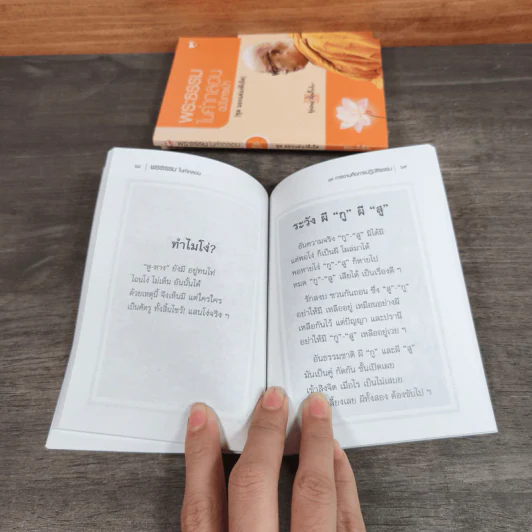 พระธรรม
ในคำกลอน
พระธรรม ในคำกลอน
ทำไมโง่?
"หู-ทาง" ยังมี อยู่ทนโท่
ไฉนโง่ ไม่เห็น อันนั้นได้
ด้วยเหตุนี้ จึงเห็นมี แต่ใครใคร
เป็นศัตรู ทั้งสิ้นไซร้! แสนโง่จริง ๆ
ระวัง ผี "กู" ผี "สู"
อันความจริง "กู"-"สู" มิได้มี
แต่พอโง่ ก็เป็นผี โผล่มาได้
พอหายโง่ "กู"-"สู" ก็หายไป
หมด "กู"-"สู" เสียได้ เป็นเรื่องดี ฯ
รักสงบ ชวนกันถอน ซึ่ง "สู"-"กู"
อย่าให้มี เหลืออยู่ เหมือนอย่างผี
เหลือกันไว้ แต่ปัญญา และปรานี
อย่าให้มี "กู"-"สู" เหลืออยู่เลย ฯ
อันธรรมชาติ ผี "กู" และผี "สู"
มันเป็นคู่ กัดกัน ชั้นเปิดเผย
เข้าสิงจิต เมื่อไร เป็นไม่เสบย
เลี้ยงเสย มีทั้งสอง ต้องขับไป ฯ